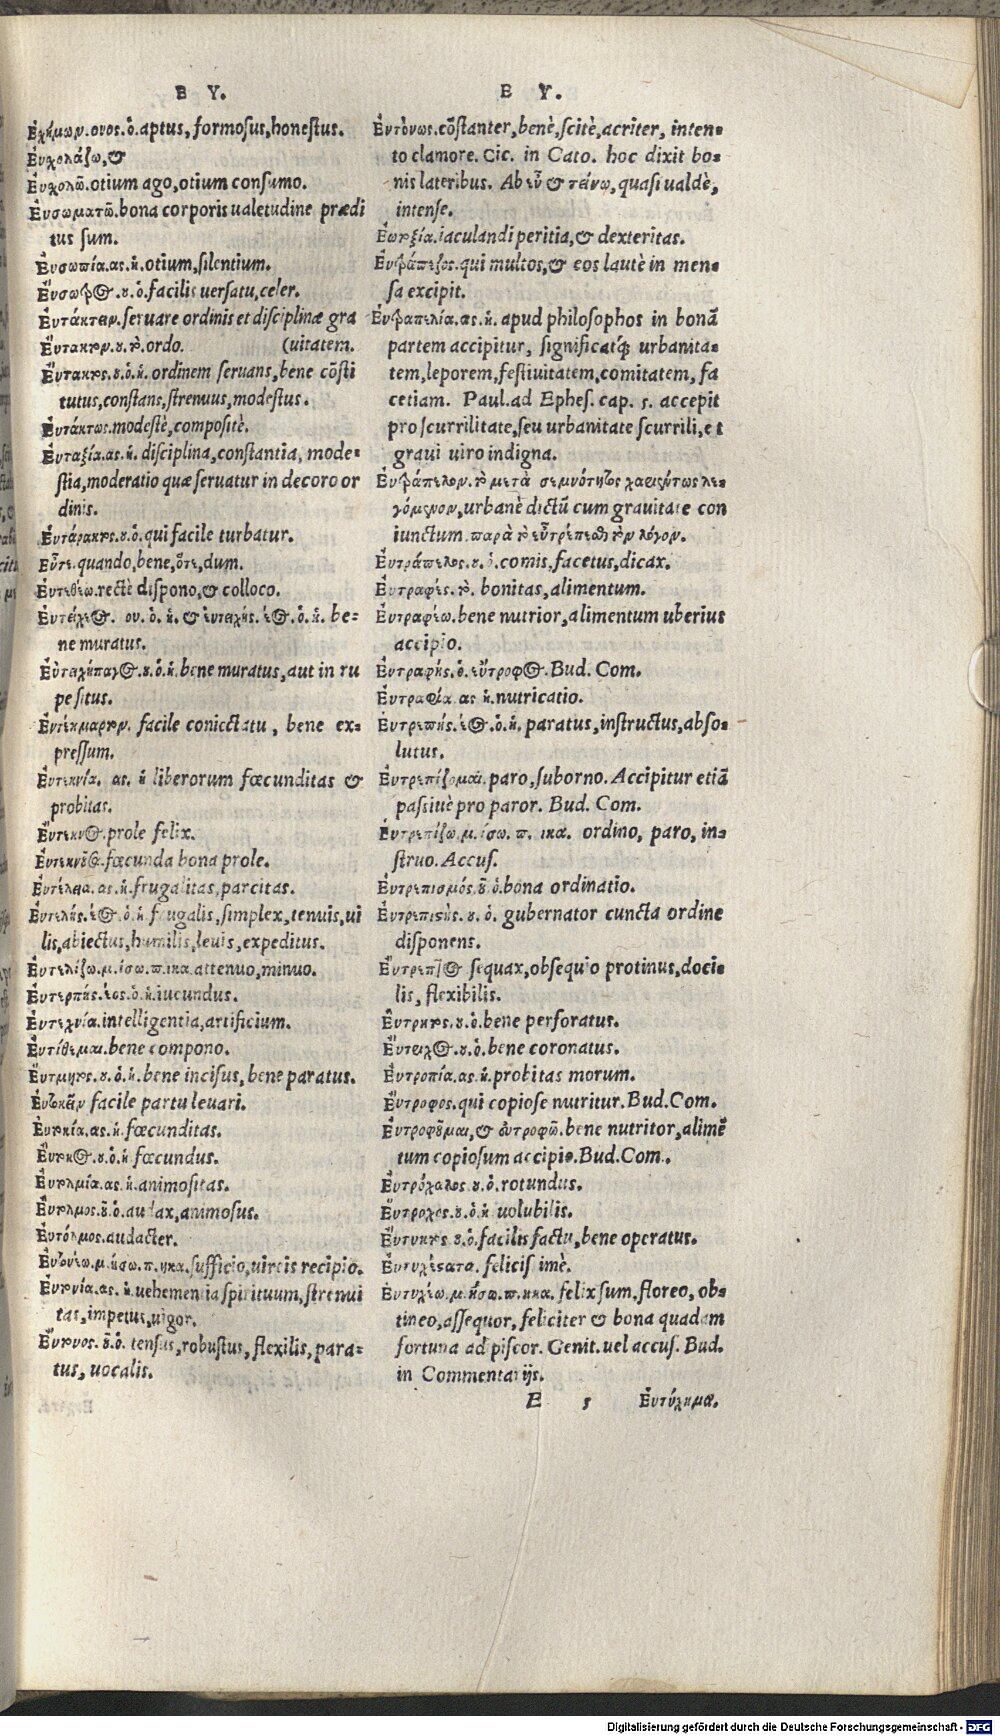 Ε Υ.
Εὐχήμων.ονος.ὁ.aptus, formosus, honestus.
Εὐσχολάζω, &
Εὐσχολῶ.otium ago, otium consumo.
Εὐσωματῶ.bona corporis ualetudine prædi
tus sum.
Εὐσωπία.ας.ἡ.otium, silentium.
Εὔσωτρος.ου.ὁ.facilis uersatu, celer.
Εὐτάκτειν.seruare ordinis et disciplinæ gra
Εὔτακτον.ου.τὸ.ordo. (uitatem.
Εὔτακτος.ου.ὁ.ἡ.ordinem seruans, bene cōsti
tutus, constans, strenuus, modestus.
Εὐτάκτως.modestè, compositè.
Εὐταξία.ας.ἡ. disciplina, constantia, mode-
stia, moderatio quæ seruatur in decoro or
dinis.
Εὐτάρακτος.ου.ὁ.qui facile turbatur.
Εὖτε.quando, bene, ὅτε, dum.
Εὐτεθέω.rectè dispono, & colloco.
Εὐτείχεος. ου. ὁ. ἡ. & εὐτειχής. έος. ὁ. ἡ. be-
ne muratus.
ὁ.ἡ.bene muratus, aut in ru
pe situs.
Εὐτέκμαρτον. facile coniectatu, bene ex-
pressum.
Εὐτεκνία. ας. ἡ liberorum fœcunditas &
probitas.
Εὔτεκνος.prole felix.
fœcunda bona prole.
Εὐτέλεια.ας.ἡ.frugalitas, parcitas.
Εὐτελής.έος.ὁ.ἡ frugalis, simplex, tenuis, ui
lis, abiectus, humilis, leuis, expeditus.
Εὐτελίζω.μ.ίσω.π.ικα.attenuo, minuo.
Εὐτερπής.έος.ὁ.ἡ.iucundus.
Εὐτεχνία.intelligentia, artificium.
Εὐτίθεμαι.bene compono.
Εὔτμητος.ου.ὁ.ἡ.bene incisus, bene paratus.
Εὐτοκεῖν facile partu leuari.
Εὐτοκία.ας.ἡ.fœcunditas.
Εὔτοκος.ου.ὁ.ἡ fœcundus.
Εὐτολμία.ας.ἡ.animositas.
Εὔτολμος.ου.ὁ.audax, animosus.
Εὐτόλμος.audacter.
Εὐτονέω.μ.ήσω.π.ηκα.sufficio, uireis recipio.
Εὐτονία.ας.ἡ.uehementia spirituum, strenui
tas, impetus, uigor.
Εὔτονος.ου.ὁ. tensus, robustus, flexilis, para-
tus, uocalis.
Ε Υ.
Εὐτόνως.cōstanter, benè, scitè, acriter, inten-
to clamore. Cic. in Cato. hoc dixit bo-
nis lateribus. Ab εὖ & τείνω, quasi ualdè,
intense.
iaculandi peritia, & dexteritas.
Εὐτράπεζος.qui multos, & eos lautè in men-
sa excipit.
Εὐτραπελία.ας.ἡ. apud philosophos in bonā
partem accipitur, significatq́ue urbanita-
tem, leporem, festiuitatem, comitatem, fa
cetiam. Paul. ad Ephes. cap. 5. accepit
pro scurrilitate, seu urbanitate scurrili, et
graui uiro indigna.
Εὐτράπελον.τὸ μετὰ σεμνότητος χαριέντως λε-
γόμενον, urbanè dictū cum grauitate con
iunctum. παρὰ τὸ εὖ τρέπεσθαι τὸν λόγον.
Εὐτράπελος.ου.ὁ.comis, facetus, dicax.
Εὐτραφές.τὸ. bonitas, alimentum.
Εὐτραφέω.bene nutrior, alimentum uberius
accipio.
Εὐτραφής.ὁ.εὔτροφος. Bud. Com.
Εὐτραφία ας ἡ.nutricatio.
Εὐτρεπής.έος.ὁ.ἡ. paratus, instructus, abso-
lutus.
Εὐτρεπίζομαι.paro, suborno. Accipitur etiā
passiuè pro paror. Bud. Com.
Εὐτρεπίζω.μ.ίσω.π.ικα. ordino, paro, in-
struo. Accus.
Εὐτρεπισμός.οῦ.ὁ.bona ordinatio.
Εὐτρεπιστής.ου.ὁ. gubernator cuncta ordine
disponens.
Εὔτρεπτος sequax, obsequio protinus, doci-
lis, flexibilis.
Εὔτρητος.ου.ὁ.bene perforatus.
ου.ὁ.bene coronatus.
Εὐτροπία.ας.ἡ.probitas morum.
Εὔτροφος.qui copiose nutritur. Bud. Com.
Εὐτροφοῦμαι, & εὐτροφῶ.bene nutritor, alimē
tum copiosum accipio. Bud. Com.
Εὐτρόχαλος.ου.ὁ.rotundus.
Εὔτροχος.ου.ὁ.ἡ uolubilis.
Εὔτυκτος ου.ὁ.facilis factu, bene operatus.
Εὐτυχέστατα. felicissimè.
Εὐτυχέω.μ.ήσω.π.ηκα. felix sum, floreo, ob-
tineo, assequor, feliciter & bona quadam
fortuna adpiscor. Genit. uel accus. Bud.
in Commentarijs.
E 5 Εὐτύχημα.
Digitalisierung gefördert durch die Deutsche Forschungsgemeinschaft - DFG